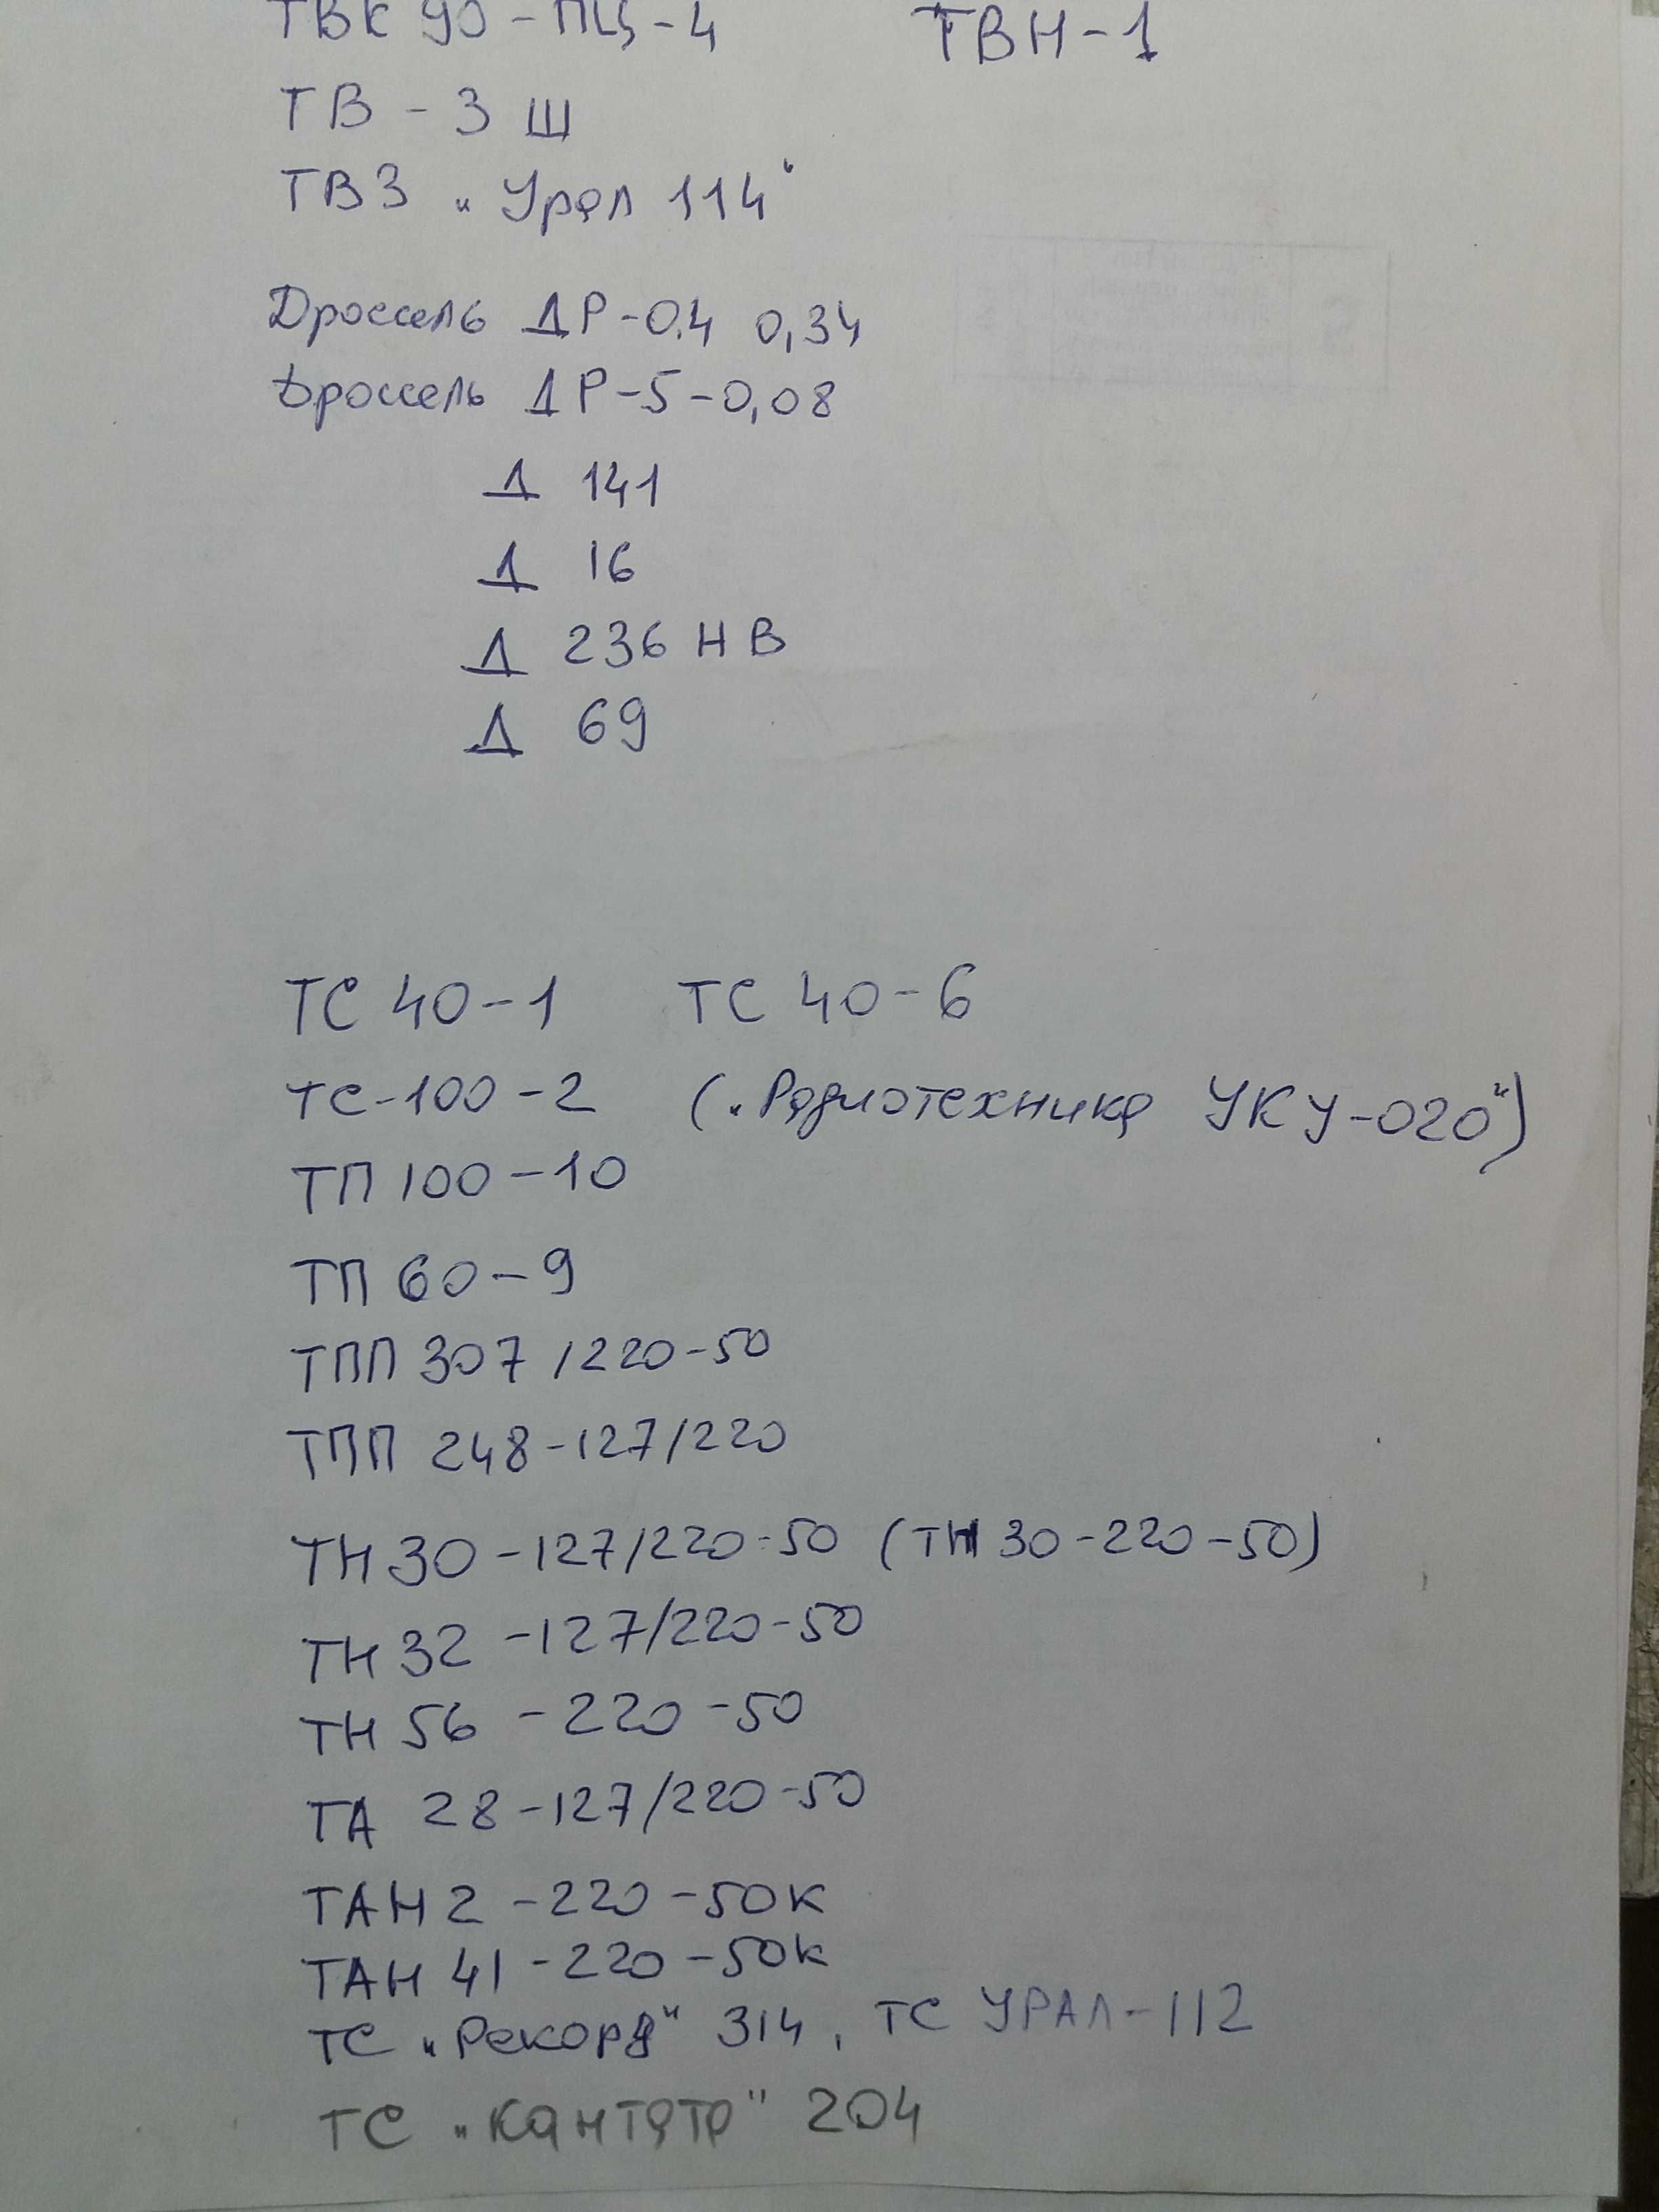 ТВК 90-ПЦ-4 ТВН-1
ТВ-3 Ш
ТВЗ „Урал 114"
Дроссель ДР-0.4 0,34
Дроссель ДР-5-0,08
Д 141
Д 16
Д 236 НВ
Д 69
ТС 40-1 ТС 40-6
ТС-100-2 („Радиотехника УКУ-020")
ТП 100-10
ТП 60-9
ТПП 307 /220-50
ТПП 248-127/220
ТН 30-127/220-50 (ТН 30-220-50)
ТН 32-127/220-50
ТН 56-220-50
ТА 28-127/220-50
ТАН 2-220-50К
ТАН 41-220-50К
ТС „Рекорд" 314, ТС УРАЛ-112
ТС „Кантата" 204